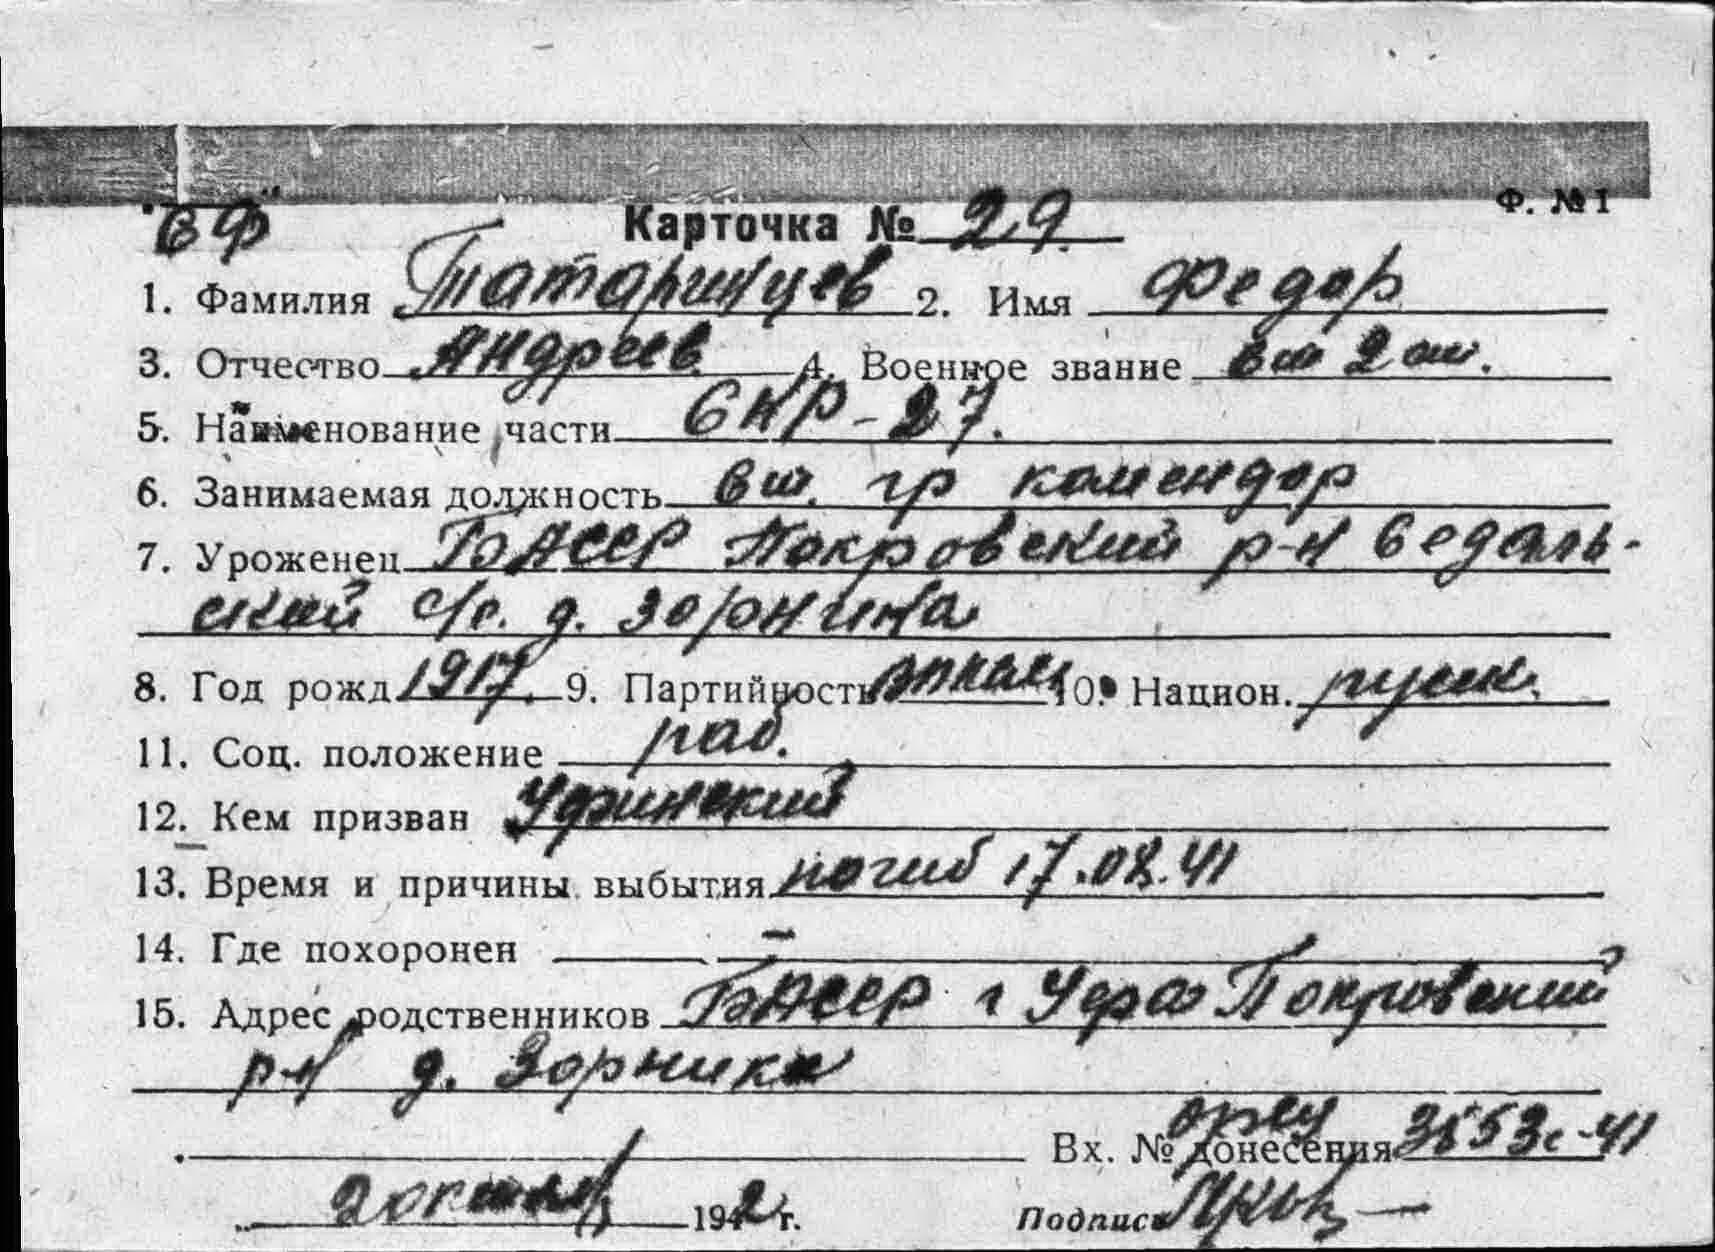 Ф. № 1
"СФ" Карточка № 29
1. Фамилия Татаринцев 2. Имя Федор
3. Отчество Андреев 4. Военное звание
5. Наименование части СКР-27.
6. Занимаемая должность гр комендор
7. Уроженец БАССР Покровский р-н Седаль-
ский с/с. д. Зорника
8. Год рожд 1917. 9. Партийность 10. Национ. русск.
11. Соц. положение раб.
12. Кем призван Уфимский
13. Время и причины выбытия погиб 17.08.41
14. Где похоронен —
15. Адрес родственников БАССР г Уфа Покровский
р-н д. Зорника
Вх. № донесения 3553с-41
2 октяб 1942 г. Подпись